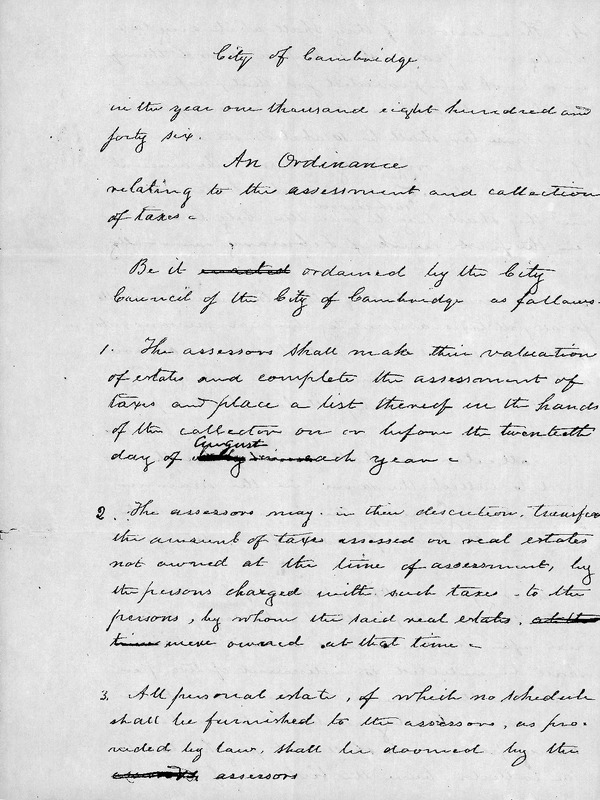 City of Cambridge
in the year one thousand eight hundred and
forty six.
An Ordinance
relating to the assessment and collection
of taxes =
Be it enacted ordained by the City
Council of the City of Cambridge as follows -
1. The assessors shall make their valuation
of estates and complete the assessment of
taxes and place a list thereof in the hands
of the collector on or before the twentieth
August
day of July in each year =
2. The assessors may in their discretion, transfer
the amount of taxes assessed on real estates
not owned at the time of assessment, by
the persons charged with such taxes to the
persons, by whom the said real estates, at the
time were owned at that time =
3. All personal estate, of which no schedule
shall be furnished to the assessors, as pro-
vided by law, shall be doomed by the
assessors